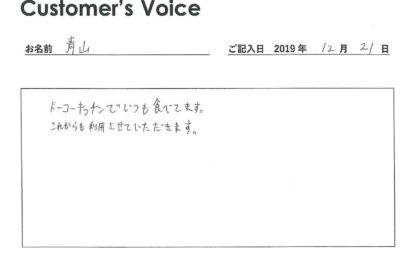 Customer's Voice
お名前 青山 ご記入日 2019年 12月 21日
トーコーキッチンでいつも食べてます。
これからも利用させていただきます。